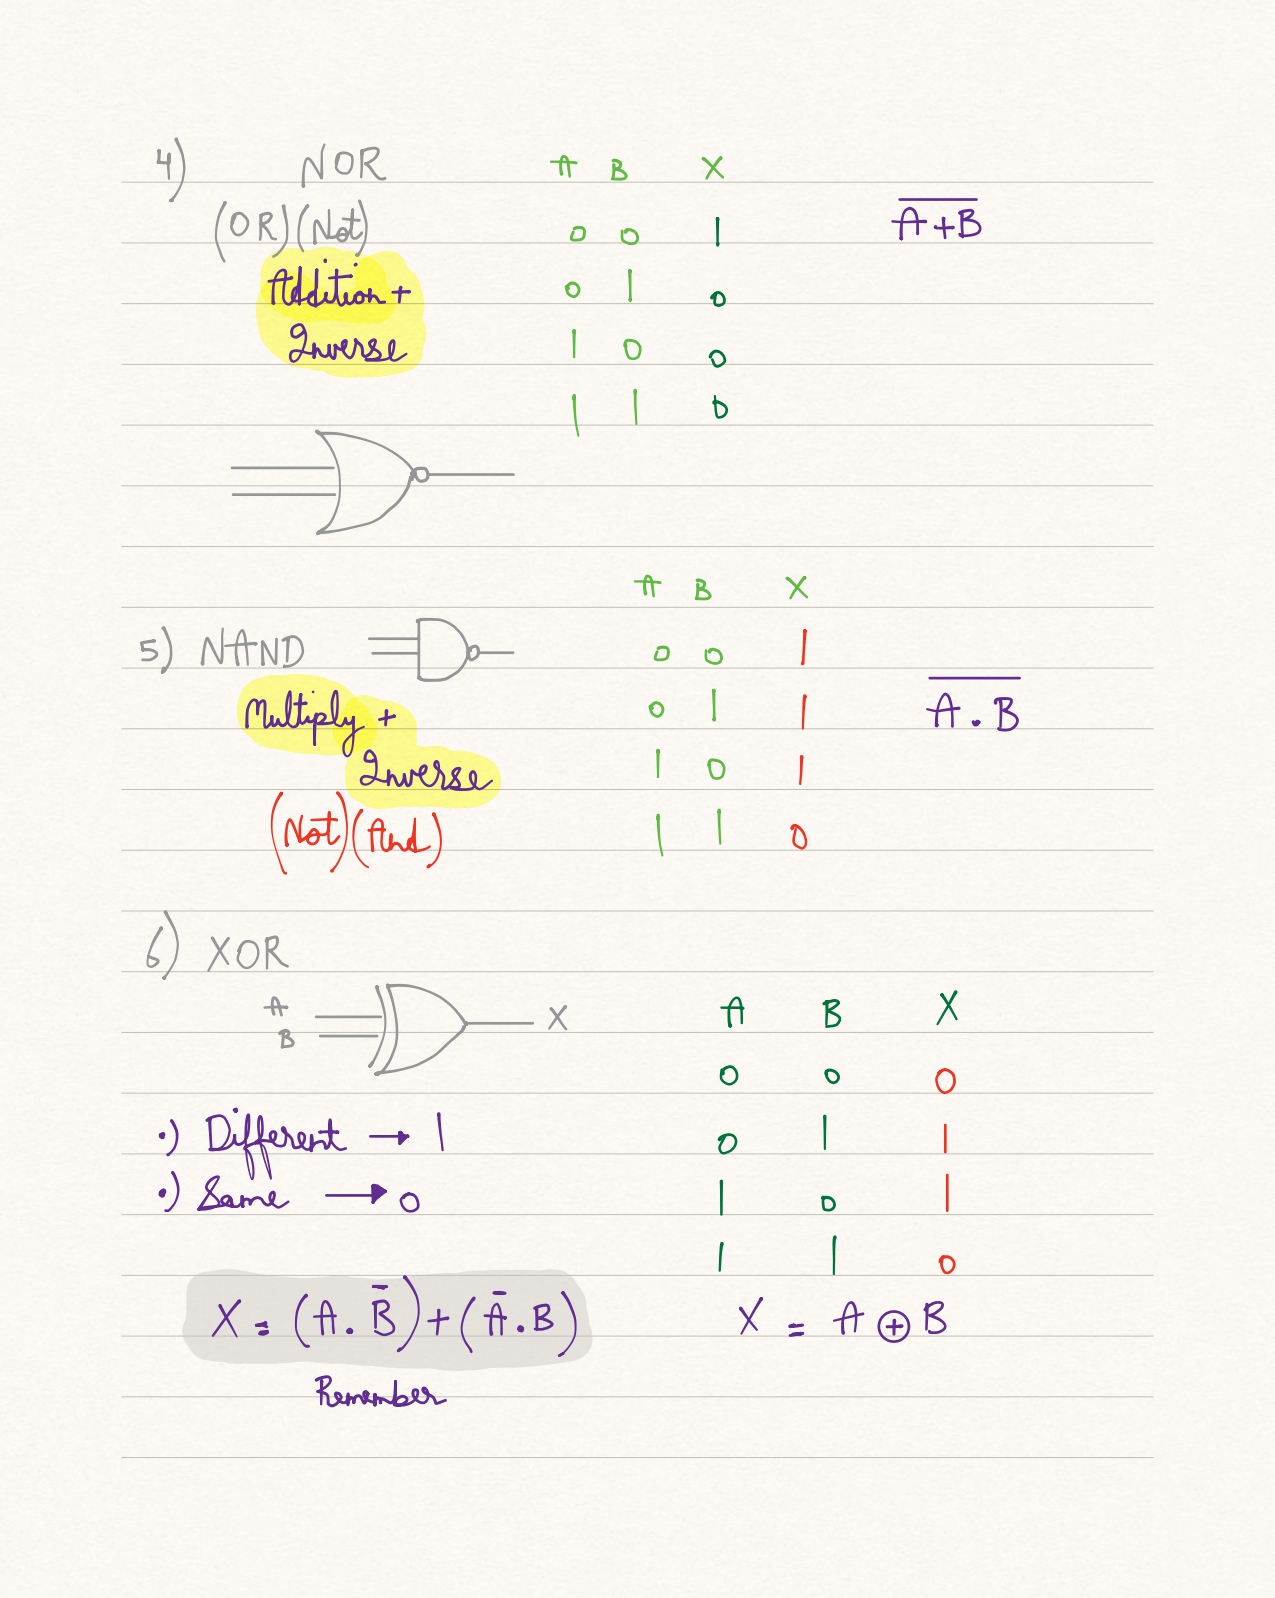 4) NOR
(OR)(Not)
Addition +
Inverse
A B X
0 0 1
0 1 0
1 0 0
1 1 0
A̅+̅B̅
5) NAND
Multiply +
Inverse
(Not)(And)
A B X
0 0 1
0 1 1
1 0 1
1 1 0
A̅ ̅.̅ ̅B̅
6) XOR
A
B
X
•) Different → 1
•) Same → 0
A B X
0 0 0
0 1 1
1 0 1
1 1 0
X = (A . B̅) + (A̅ . B)
Remember
X = A ⊕ B